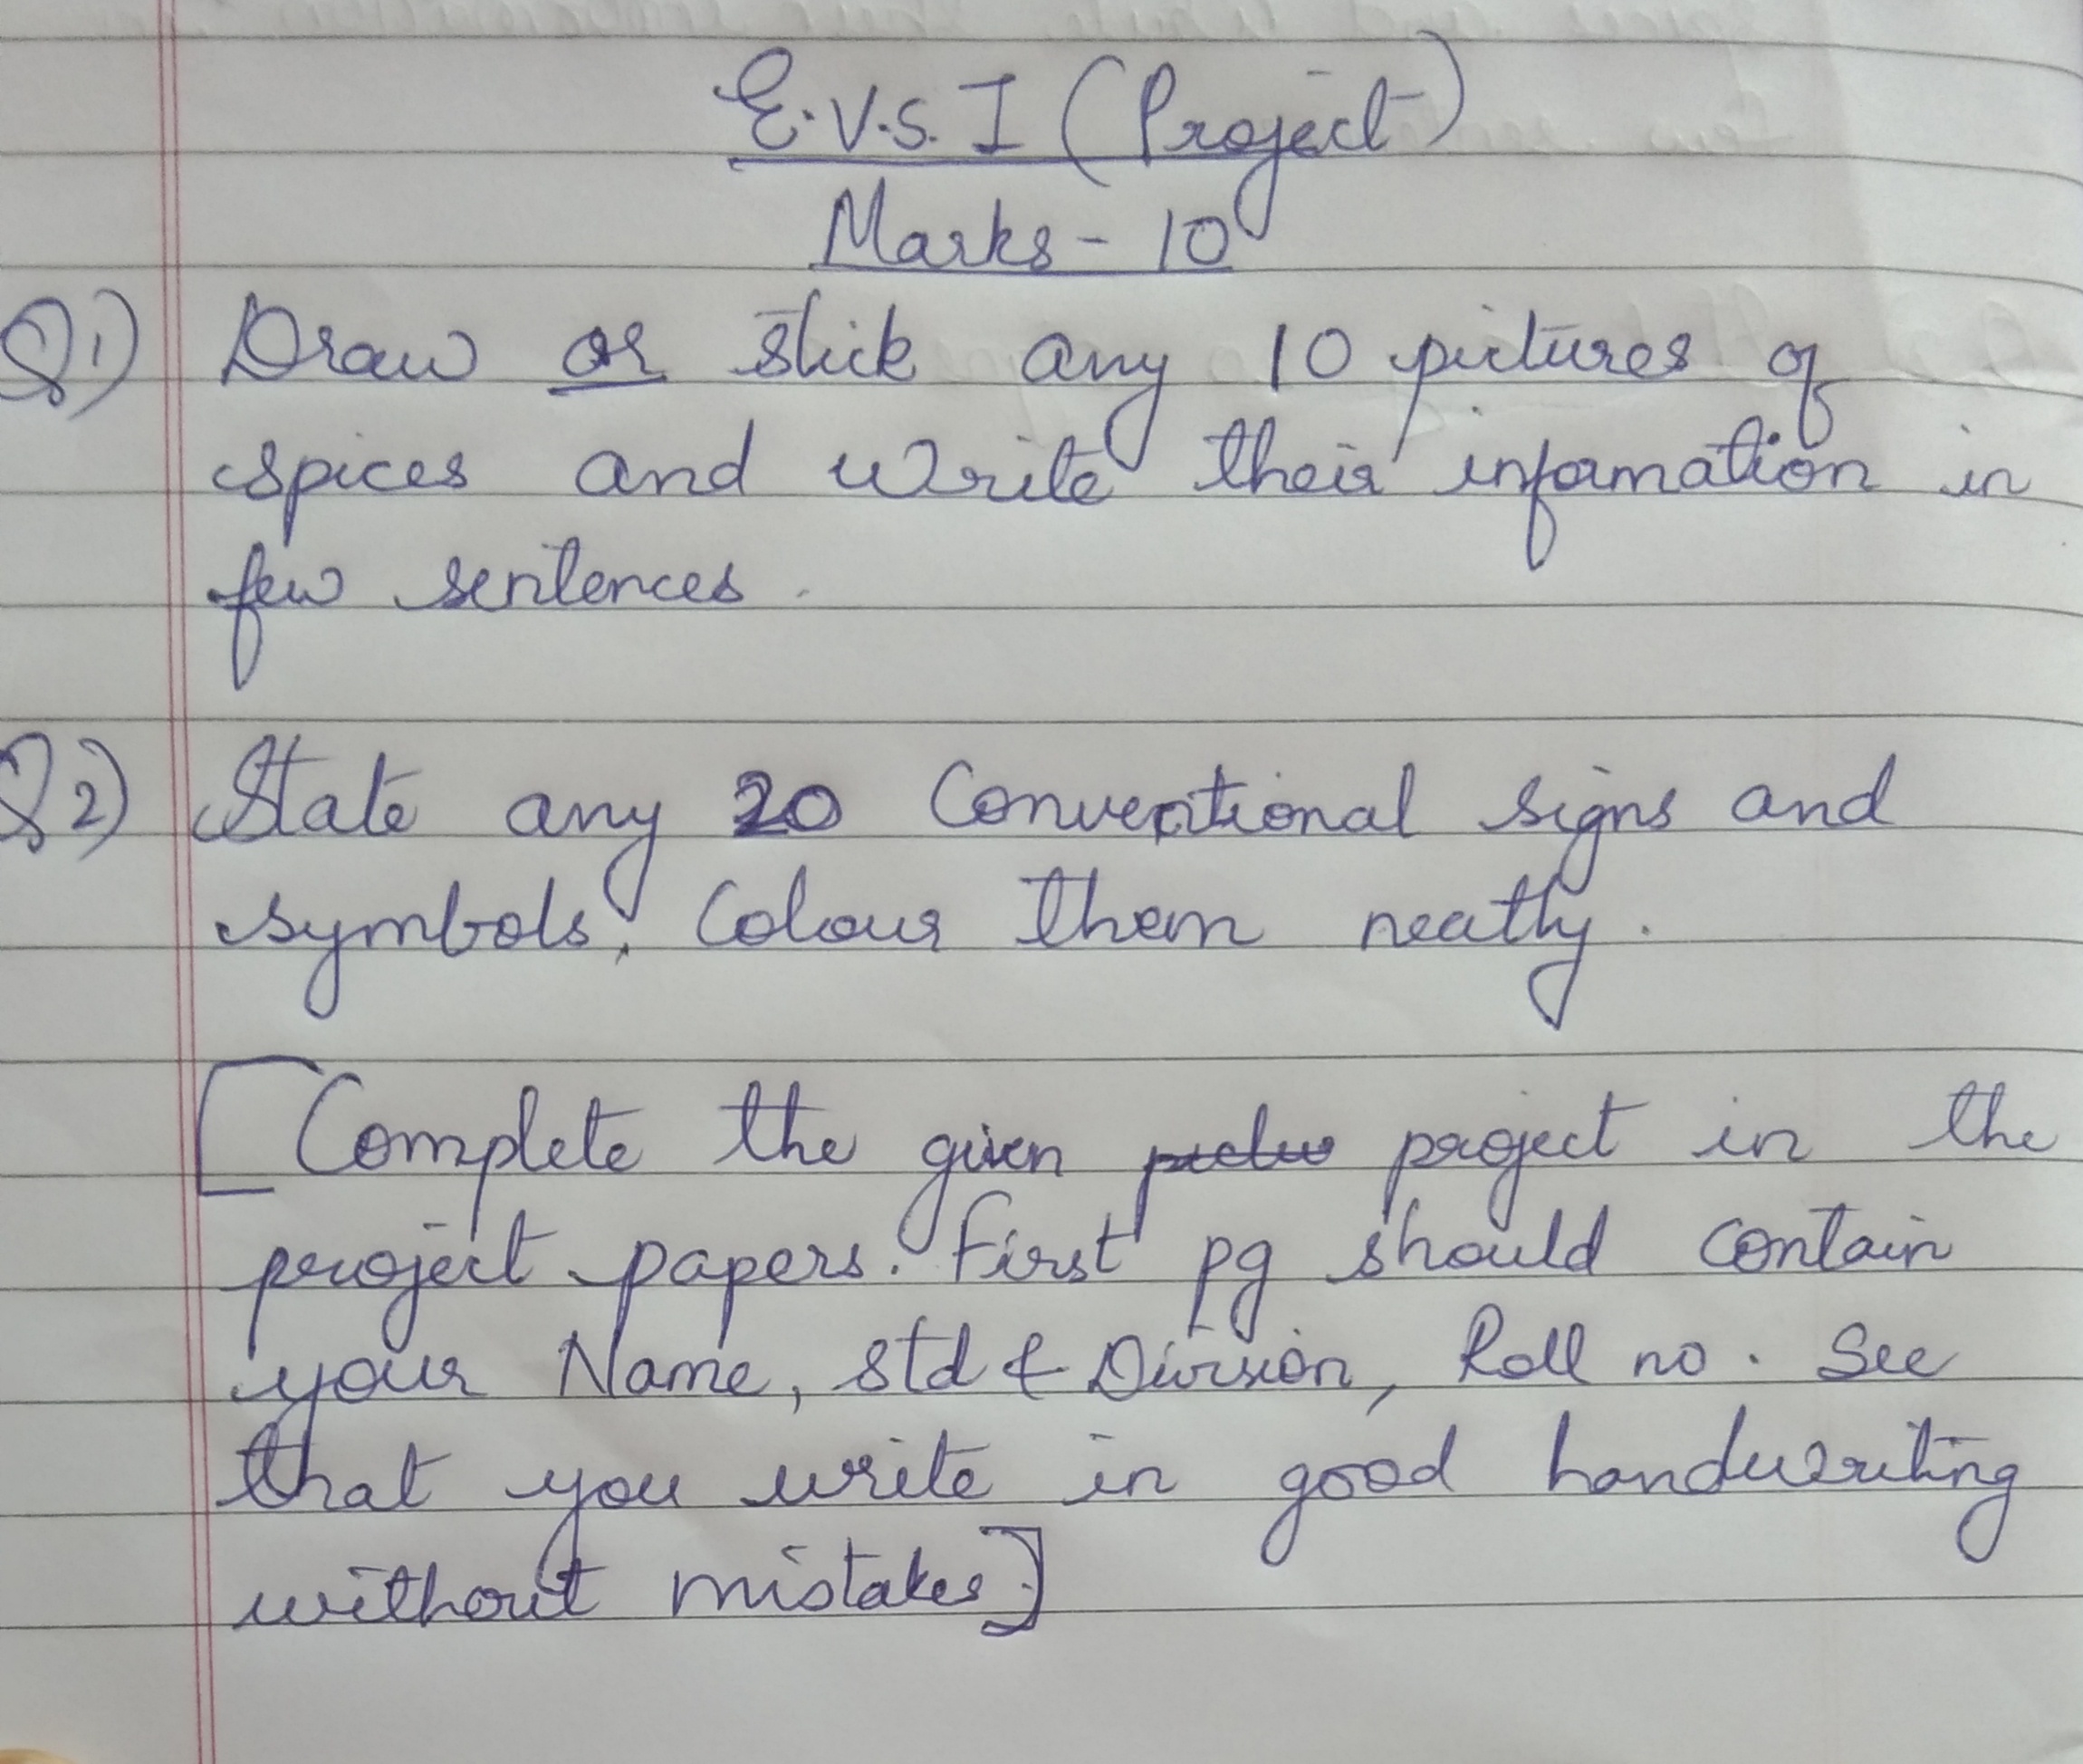 E.V.S. I (Project)
Marks - 10
Q1) Draw or stick any 10 pictures of
spices and write their infomation in
few sentences.
Q2) State any 20 Conventional signs and
symbols. Colour them neatly.
[Complete the given project in the
project papers. First pg should contain
your Name, std & Division, Roll no. See
that you write in good handwriting
without mistakes.]